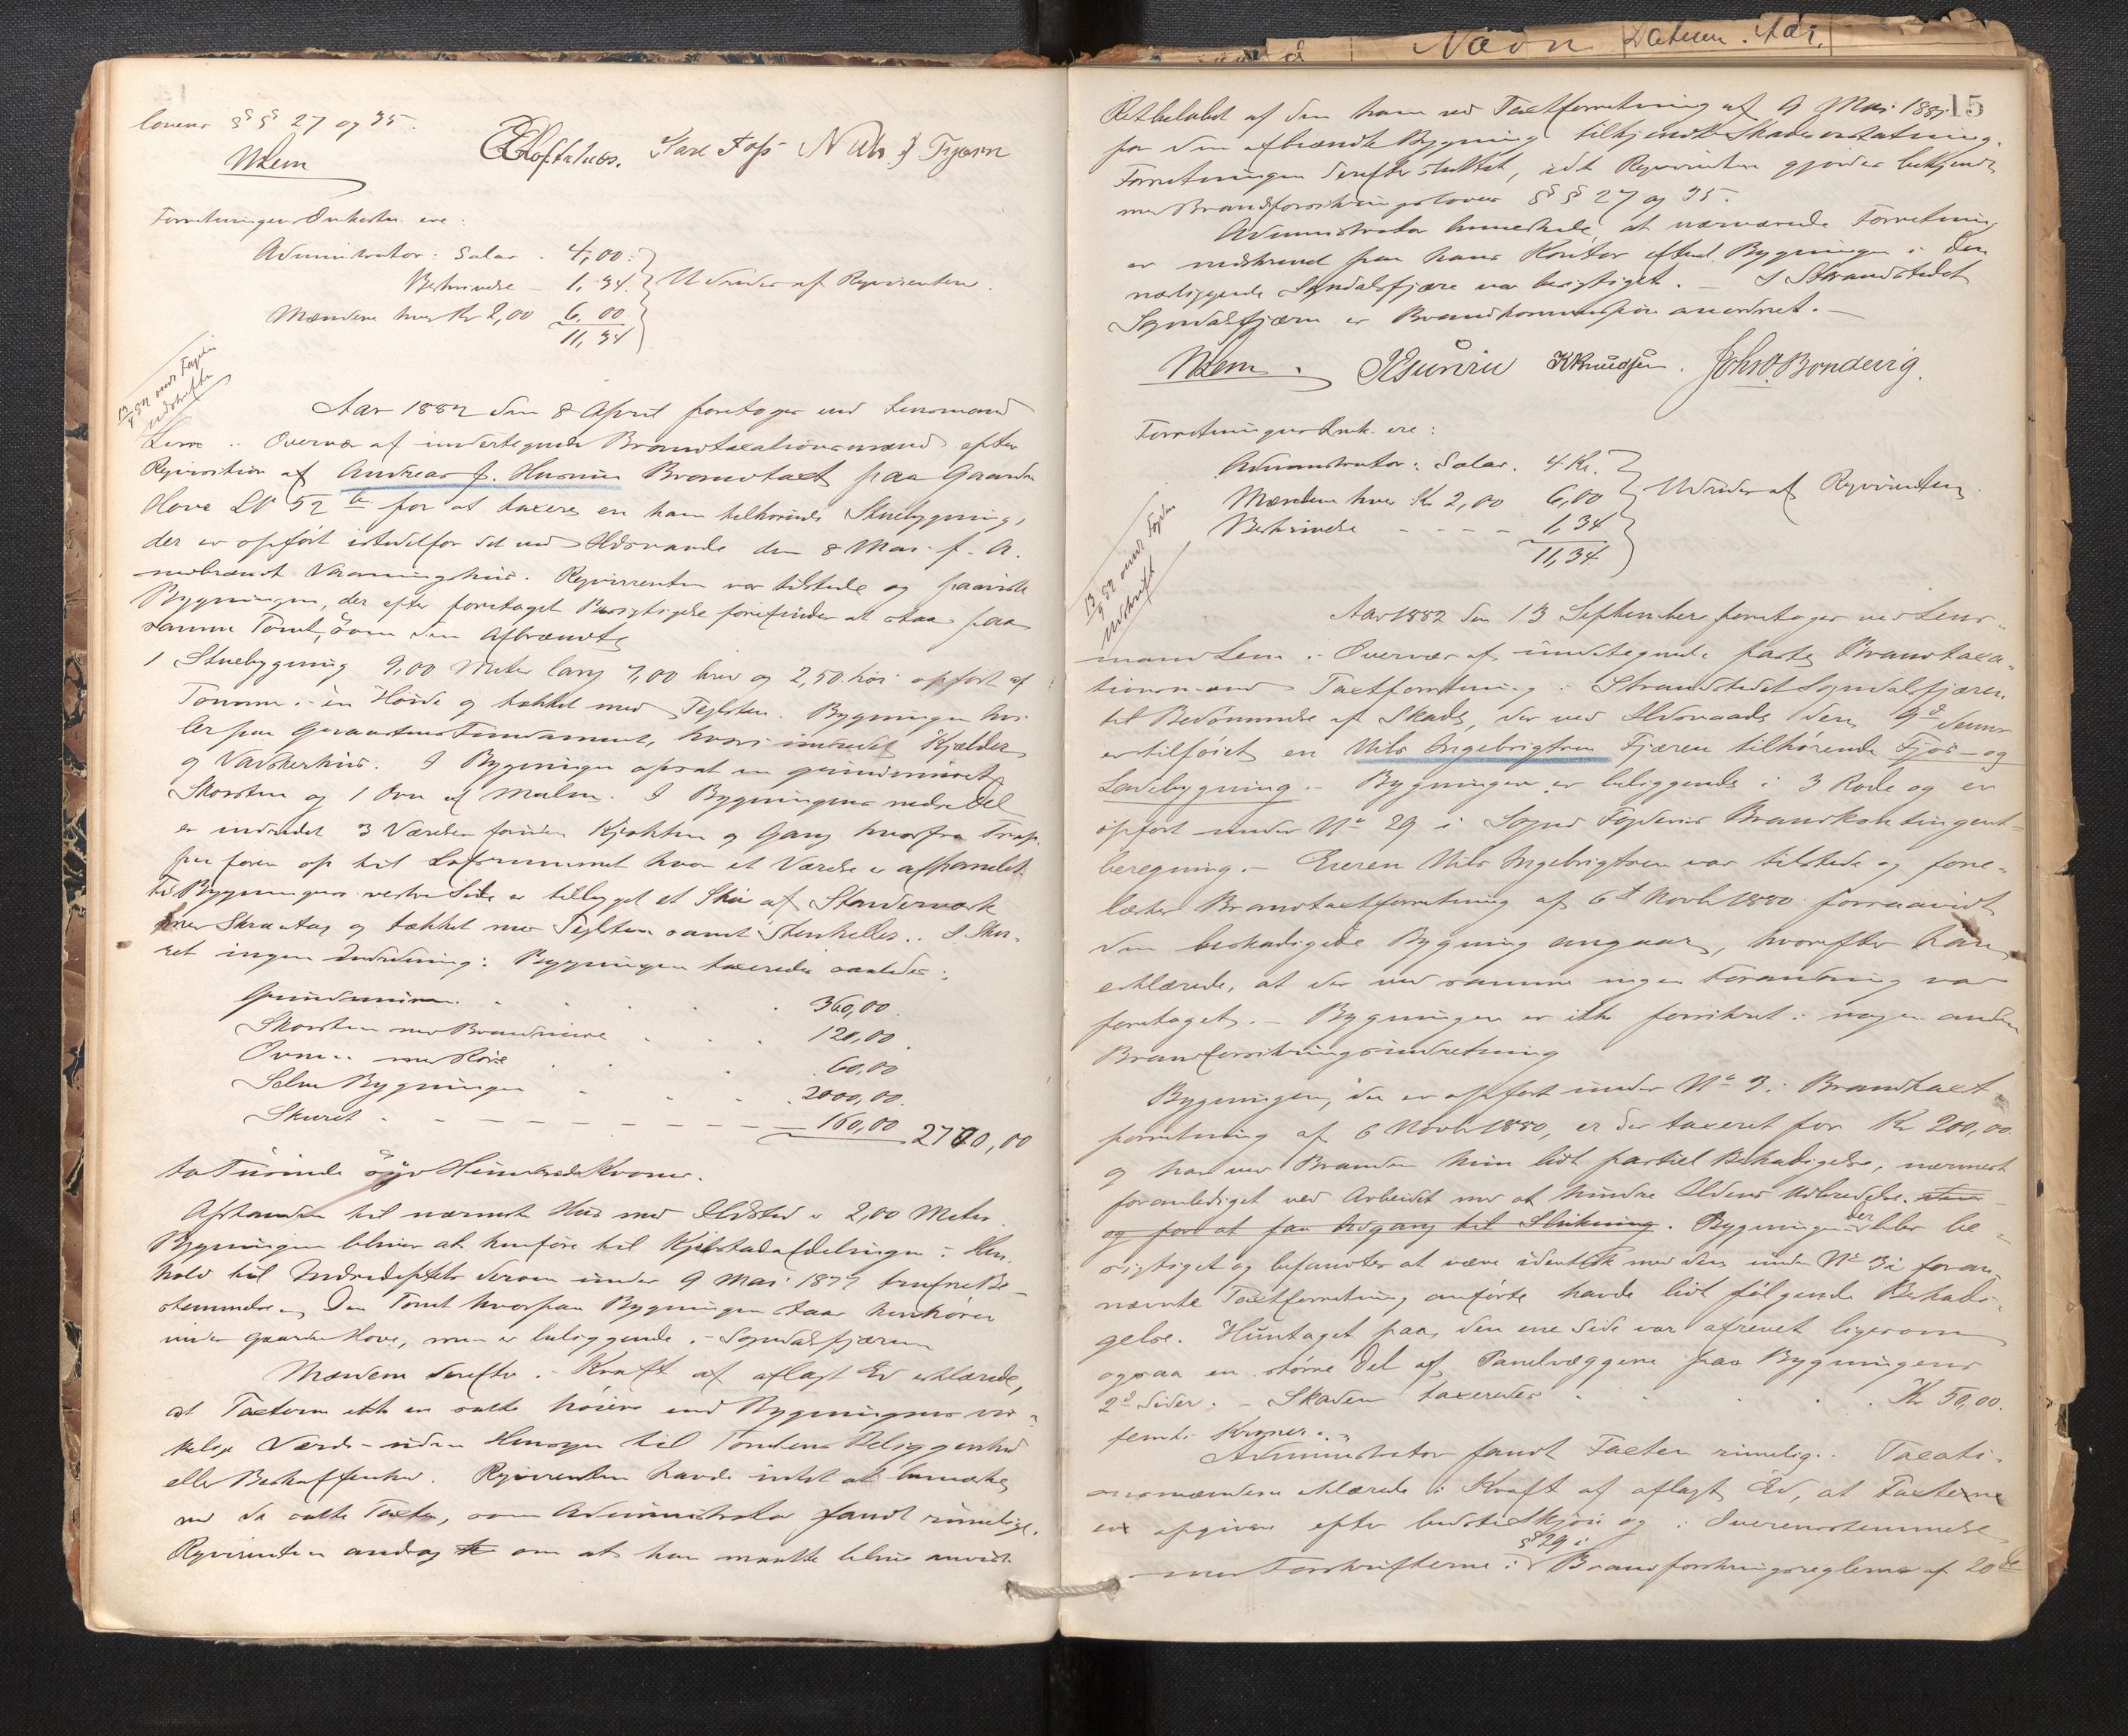 lovens §§ 27 og 35.
NLem Karl Foss Nils J Fjærn
Forretningens Omkostn. ere:
Administrator: Salar. 4,00
Beskrivelse – 1,34 Udredes af Rekvirenten.
Mændene hver Kr 2,00 6,00
11,34
13/4 82 med Fogden
Udskrift
Aar 1882 den 8 April foretoges ved Lensmand
Lem i Overvær af undertegnede Brandtaxationsmænd efter
Reqvisition af Andreas J. Husum Brandtaxt paa Gaarden
Hove LN 52 b for at taxere en ham tilhørende Stuebygning,
der er opført istedetfor det ved Ildsvaade den 8 Mai f. A.
nedbrændt Vaaningshus. Reqvirenten var tilstede og paaviste
Bygningen, der efter foretaget Besigtigelse forefindes at staa paa
samme Tomt, som den Afbrændte
1 Stuebygning 9,00 Meter lang 7,00 bred og 2,50 høi opført af
Tømmer i en Høide og tækket med Teglsten. Bygningen hvi-
ler paa Graastens Fundament, hvori indredet Kjælder
og Vaskerhus. I Bygningen opsat en grundmuret
Skorsten og 1 Ovn af Malm. I Bygningens nedre Del
er indredet 3 Værelser foruden Kjøkken og Gang hvorfra Trap-
per fører op til Loftsrummet hvor et Værelse er afpanelet
Til Bygningens vestre Side er tilbygget et Skur af Stænderværk
med Skraatag og tækket med Teglsten samt Stenheller. I Sku-
ret ingen Indredning: Bygningen taxeredes saaledes:
Grundmuren 360,00
Skorsten med Brandmure 120,00
Ovnen med Rør 60,00
Selve Bygningen 2000,00
Skuret 160,00 2700,00
to Tusinde syv Hundrede Kroner.
Afstanden til nærmeste Hus med Ildsted er 2,00 Meter.
Bygningen bliver at henføre til Kjøbstadafdelingen i Hen-
hold til Indredeptets derom under 9 Mai 1877 trufne Be-
stemmelse. Den Tomt hvorpaa Bygningen staar henhører
under Gaarden Hove, men er beliggende i Sogndalsfjæren
Mændene derefter i Kraft af aflagt Ed erklærede,
at Taxterne ikke er satte høiere end Bygningens vir-
kelige Værdi uden Hensyn til Tomtens Beliggenhed
eller Beskaffenhed. Reqvirenten havde intet at bemærke
ved de satte Taxter, som Administrator fandt rimelige.
Reqvirenten androg om at han maatte blive anvist
15
Restbeløbet af den ham ved Taxtforretning af 9 Mai 1881
for den afbrændte Bygning tilkjendte Skadeerstatning.
Forretningen derefter sluttet, idet Reqvirenten gjordes bekjendt
med Brandforsikringslovens §§ 27 og 35.
Administrator anmærkede, at nærværende Forretning
er nedskrevet paa hans Kontor efterat Bygningen i den
nærliggende Sogndalsfjære var besigtiget. – I Strandstedet
Sogndalsfjæren er Brandkommission anordnet. –
NLem. K Knudsen. Johs. O. Bondevig.
Forretningens Omk. ere:
Administrator: Salar. 4 Kr.
Mændene hver Kr 2,00 6,00 Udredes af Reqvirenten
Beskrivelse - - - - 1,34
11,34
13/9 82 med Fogden
Udskrift
Aar 1882 den 13 September foretoges ved Lens-
mand Lem i Overvær af undertegnede faste Brandtaxa-
tionsmænd Taxtforretning i Strandstedet Sogndalsfjæren
til Bedømmelse af Skade, der ved Ildsvaade den 9d dennes
er tilføiet en Nils Ingebrigtsen Fjæren tilhørende Fjøs- og
Ladebygning. – Bygningen er beliggende i 3 Rode og er
opført under No 29 i Sogns Fogderis Brandkontingent-
beregning. – Eieren Nils Ingebrigtsen var tilstede og fore-
læstes Brandtaxtforretning af 6te Novbr 1880 forsaavidt
den beskadigede Bygning angaar, hvorefter han
erklærede, at der ved samme ingen Forandring var
foretaget. – Bygningen er ikke forsikret i nogen anden
Brandforsikringsindretning
Bygningen, der er opført under No 3 i Brandtaxt-
forretning af 6 Novbr 1880, er der taxeret for Kr 200,00
og har ved Branden kun lidt partiel Beskadigelse, nærmest
foranlediget ved Arbeidet med at hindre Ildens Udbredelse.
og for at faa Adgang til Slukning. Bygningen der blev be-
sigtiget og befandtes at være identisk med den under No 3 i foran-
nævnte Taxtforretning anførte havde lidt følgende Beskadi-
gelse. Huntaget paa den ene Side var afrevet ligesom
ogsaa en større Del af Panelvæggene paa Bygningens
2de Sider. – Skaden taxeredes Kr 50,00.
femti Kroner.
Administrator fandt Taxten rimelig. Taxati-
onsmændene erklærede i Kraft af aflagt Ed, at Taxterne
er afgivne efter bedste Skjøn og i Overensstemmelse
med Forskrifterne i § 29 i Brandforsikringsreglerne af 20de